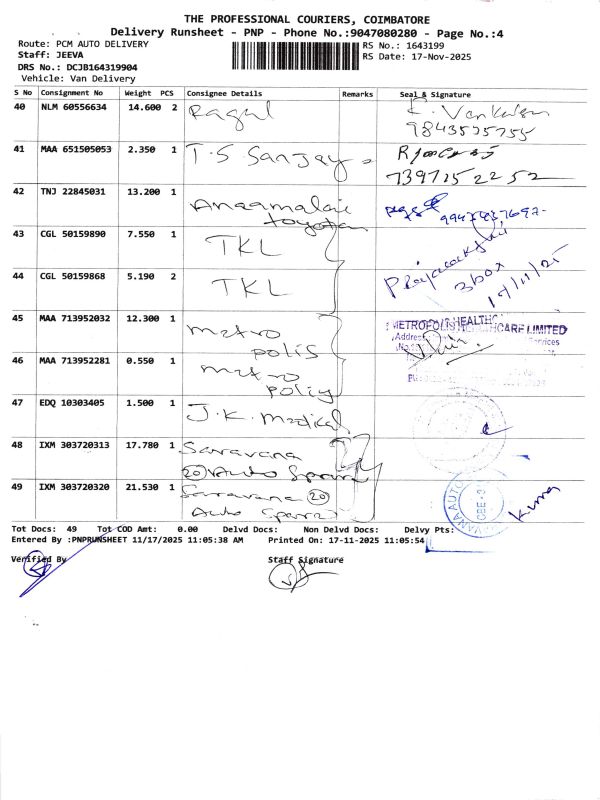 THE PROFESSIONAL COURIERS, COIMBATORE
Delivery Runsheet - PNP - Phone No.:9047080280 - Page No.:4
Route: PCM AUTO DELIVERY
Staff: JEEVA
DRS No.: DCJB164319904
Vehicle: Van Delivery
RS No.: 1643199
RS Date: 17-Nov-2025
S No Consignment No Weight PCS Consignee Details Remarks Seal & Signature
40 NLM 60556634 14.600 2 Ragal
9843535755
41 MAA 651505053 2.350 1 T.S Sanjay
42 TNJ 22845031 13.200 1 Anaamalai
toyota
43 CGL 50159890 7.550 1 TKL
44 CGL 50159868 5.190 2 TKL
3 box
17/11/25
45 MAA 713952032 12.300 1 metro
polis
METROPOLIS HEALTHCARE LIMITED
46 MAA 713952281 0.550 1 metro
poliy
47 EDQ 10303405 1.500 1 J.K. Medical
48 IXM 303720313 17.780 1 Saravana
20 Auto Spares
49 IXM 303720320 21.530 1 Saravana 20
Auto Spares
Kumar
Tot Docs: 49 Tot COD Amt: 0.00 Delvd Docs: Non Delvd Docs: Delvy Pts:
Entered By :PNPRUNSHEET 11/17/2025 11:05:38 AM Printed On: 17-11-2025 11:05:54
Verified By Staff Signature